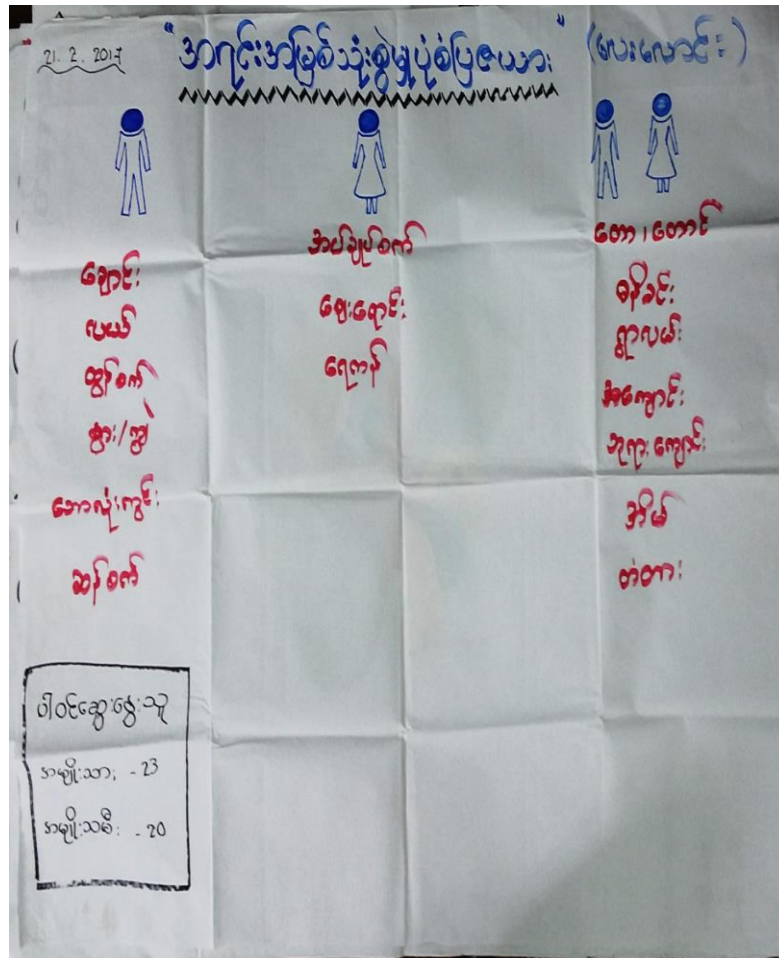 21. 2. 2017 "အရင်းအမြစ်သုံးစွဲမှုပုံစံပြဇယား" (လေးလောင်း)
ချောင်း
လယ်
ထွန်စက်
နွား/ကျွဲ
ဘောလုံးကွင်း
ဆန်စက်
အပ်ချုပ်စက်
ဈေးရောင်း
ရေကန်
တော၊ တောင်
ဓနိခင်း
ရွာလယ်
စာကျောင်း
ဘုရားကျောင်း
အိမ်
တံတား
ပါဝင်ဆွေးနွေးသူ
အမျိုးသား - 23
အမျိုးသမီး - 20